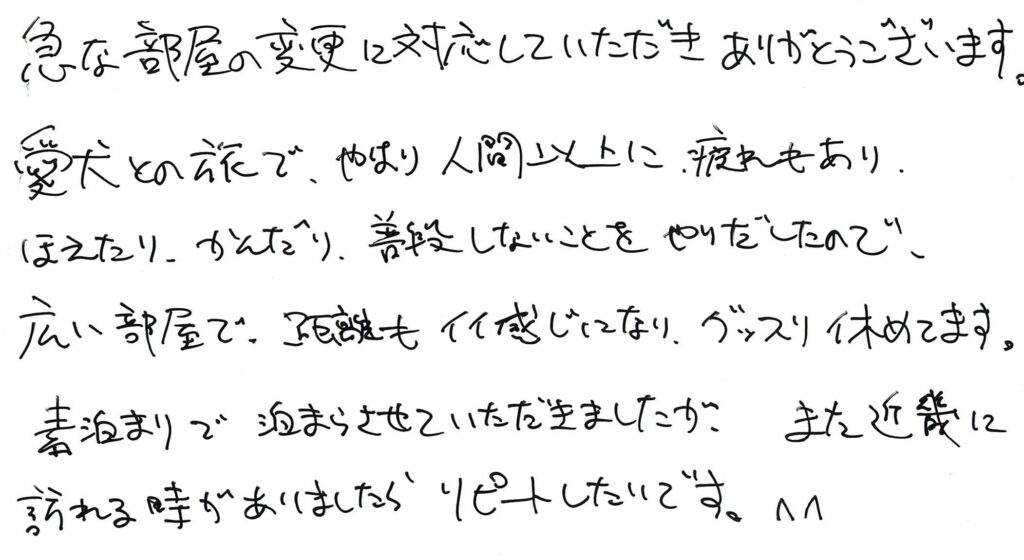 急な部屋の変更に対応していただきありがとうございます。
愛犬との旅で、やはり人間以上に、疲れもあり、
ほえたり、かんだり、普段しないことをやりだしたので、
広い部屋で、距離もイイ感じになり、グッスリ休めてます。
素泊まりで泊まらさせていただきましたが、また近畿に
訪れる時がありましたらリピートしたいです。^^